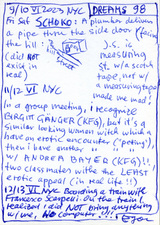 9/10 VI 2023 NYC DREAMS 98
Fri Sat SCHOKO: A plumber delivers
a pipe thru the side door (facing
the hill!
(did NOT
exist in
real)
J.S. is
measuring
St. w/a scotch
tape, not w/
a measuring tape
made me mad!
11/12 VI NYC
in a group meeting, I recognize
BIRGIT GÄNGER (KFG), but it's a
similar looking women witch which I
have an erotic encounter ("potting"),
then I have another "
w/ ANDREA BAYER (KFG)!!
two classmates with the least
erotic appeal (in real life!!)
12/13 VI NYC Boarding a train with
Francesco Scarpelli. On the train I
realized I did NOT bring anything
w/me, NO computer!!!